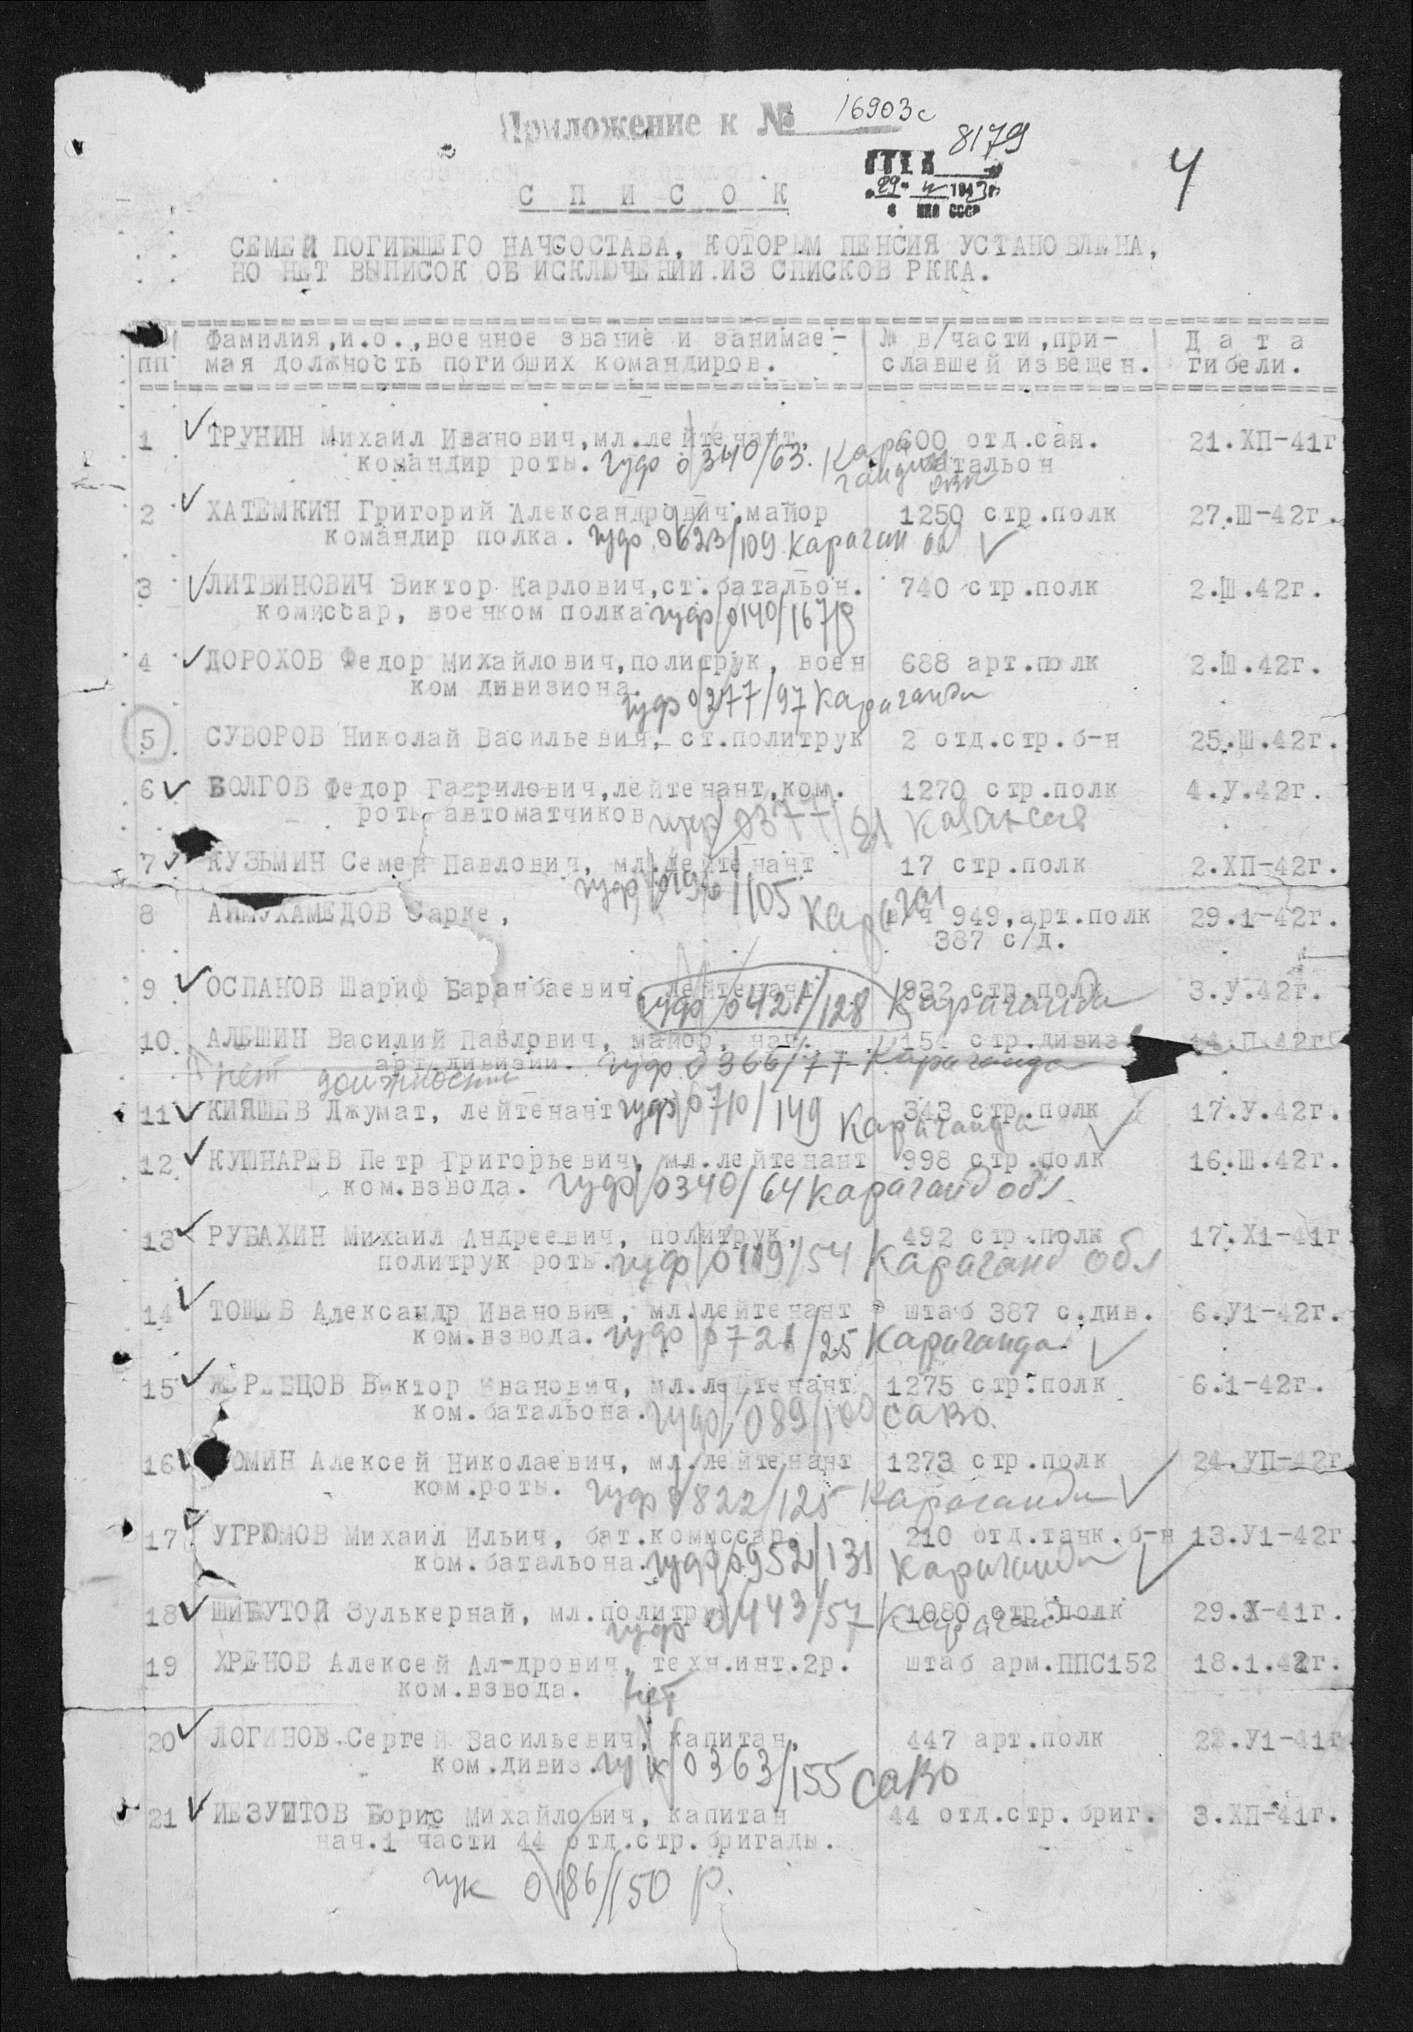 Приложение к № 16903с
8179
4
1943г.
НКО СССР
С П И С О К
СЕМЕЙ ПОГИБШЕГО НАЧСОСТАВА, КОТОРЫМ ПЕНСИЯ УСТАНОВЛЕНА,
НО НЕТ ВЫПИСОК ОБ ИСКЛЮЧЕНИИ ИЗ СПИСКОВ РККА.
Фамилия,и.о.,военное звание и занимае- № в/части,при- Д а т а
пп мая должность погибших командиров. славшей извещен. гибели.
1 ТРУНИН Михаил Иванович,мл.лейтенант, 600 отд.сап. 21.ХП-41г
командир роты. гуф 0340/63. Караганди батальон
2 ХАТЕМКИН Григорий Александрович,майор 1250 стр.полк 27.Ш-42г.
командир полка. гуф 0623/109 Караган об
3 ЛИТВИНОВИЧ Виктор Карлович,ст.батальон. 740 стр.полк 2.Ш.42г.
комиссар, военком полка гуф 0140/167
4 ДОРОХОВ Федор Михайлович,политрук, воен 688 арт.полк 2.Ш.42г.
ком дивизиона. гуф 0277/97 Караганди
5 СУВОРОВ Николай Васильевич, ст.политрук 2 отд.стр.б-н 25.Ш.42г.
6 ВОЛГОВ Федор Гаврилович,лейтенант,ком. 1270 стр.полк 4.У.42г.
роты автоматчиков 0377/81
7 КУЗЬМИН Семен Павлович, мл.лейтенант 17 стр.полк 2.ХП-42г.
гуф /105 Караган
8 АЙМУХАМЕДОВ Сарке, 949,арт.полк 29.1-42г.
387 с/д.
9 ОСПАНОВ Шариф Баранбаевич, лейтенант 832 стр.полк 3.У.42г.
гуф 0421/128 Караганда
10 АЛЕШИН Василий Павлович, майор, нач. 154 стр.дивиз. 14.П.42г
арт.дивизии. гуф 0366/77 Караганда
нет должности
11 КИЯШЕВ Джумат, лейтенант гуф 0710/149 343 стр.полк 17.У.42г.
Караганда
12 КУШНАРЕВ Петр Григорьевич, мл.лейтенант 998 стр.полк 16.Ш.42г.
ком.взвода. гуф 0340/64 Караганд обл.
13 РУБАХИН Михаил Андреевич, политрук, 492 стр.полк 17.Х1-41г
политрук роты. гуф 0119/54 Караганд обл
14 ТОЩЕВ Александр Иванович, мл.лейтенант штаб 387 с.див. 6.У1-42г.
ком.взвода. гуф 0721/25 Караганда
15 ЖЕРЕБЦОВ Виктор Иванович, мл.лейтенант 1275 стр.полк 6.1-42г.
ком.батальона. гуф 089/100 САВО.
16 ОМИН Алексей Николаевич, мл.лейтенант 1273 стр.полк 24.УП-42г
ком.роты. гуф 0822/125 Караганди
17 УГРЮМОВ Михаил Ильич, бат.комиссар, 210 отд.танк.б-н 13.У1-42г
ком.батальона. гуф 0952/131 Караганди
18 ШИБУТОЙ Зулькернай, мл.политрук 1080 стр.полк 29.Х-41г.
гуф 0443/57 Караганд
19 ХРЕНОВ Алексей Ал-дрович, техн.инт.2р. штаб арм.ППС152 18.1.42г.
ком.взвода. нет
20 ЛОГИНОВ Сергей Васильевич, капитан, 447 арт.полк 22.У1-41г
ком.дивиз. гук 0363/155 САВО
21 ИЕЗУИТОВ Борис Михайлович, капитан 44 отд.стр.бриг. 3.ХП-41г.
нач.1 части 44 отд.стр.бригады.
гук 0186/150 р.